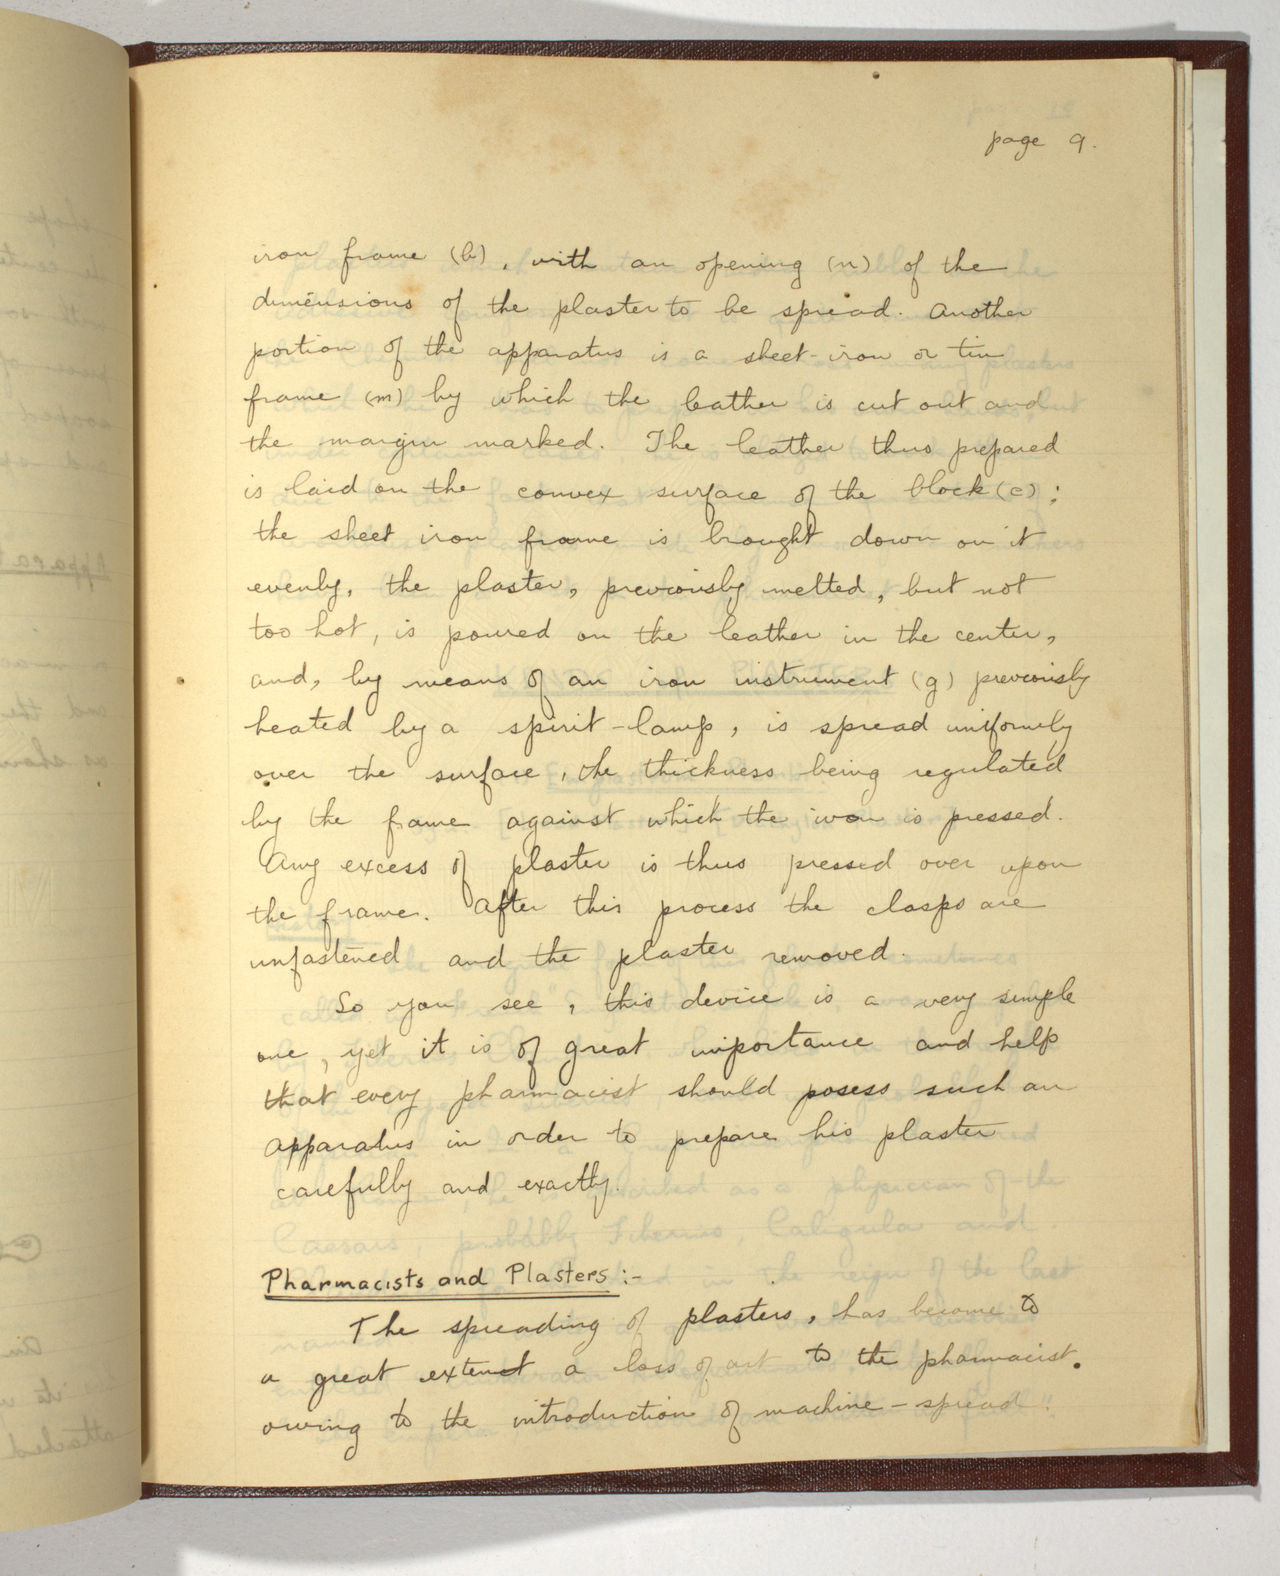 page 9.
iron frame (b), with an opening (n) of the
dimensions of the plaster to be spread. Another
portion of the apparatus is a sheet-iron or tin
frame (m) by which the leather is cut out and
the margin marked. The leather thus prepared
is laid on the convex surface of the block (c);
the sheet iron frame is brought down on it
evenly, the plaster, previously melted, but not
too hot, is poured on the leather in the center,
and, by means of an iron instrument (g) previously
heated by a spirit-lamp, is spread uniformly
over the surface, the thickness being regulated
by the frame against which the iron is pressed.
Any excess of plaster is thus pressed over upon
the frame. After this process the clasps are
unfastened and the plaster removed.
So you see, this device is a very simple
one, yet it is of great importance and help
that every pharmacist should posess such an
apparatus in order to prepare his plaster
carefully and exactly.
Pharmacists and Plasters:-
The spreading of plasters, has become to
a great extent a loss of art to the pharmacist.
owing to the introduction of machine-spread